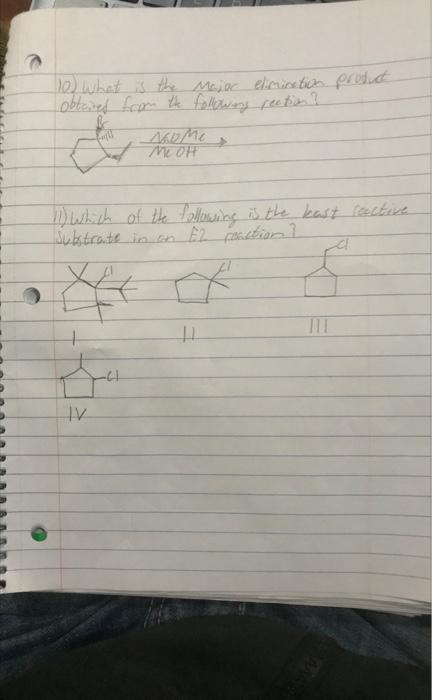 10) What is the Major elimination product
obtained from the following reaction?
Br
NaOMe
MeOH
11) Which of the following is the least reactive
substrate in an E2 reaction?
Cl
Cl
Cl
I
II
III
Cl
IV